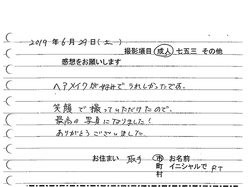 2019年6月29日(土)
撮影項目 成人 七五三 その他
感想をお願いします
ヘアメイクが好みでうれしかったです。
笑顔で撮っていただけたので、
最高の写真になりました！
ありがとうございました。
お住まい 取手 市 お名前
町 イニシャルで R T
村